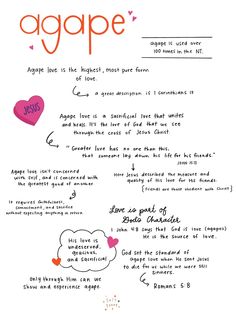 agape
agape is used over
100 times in the NT.
Agape love is the highest, most pure form
of love.
a great description is 1 Corinthians 13
JESUS
Agape love is a sacrificial love that unites
and heals. It's the love of God that we see
through the cross of Jesus Christ.
"Greater love has no one than this,
that someone lay down his life for his friends."
JOHN 15:13
Agape love isn't concerned
with self, and is concerned with
the greatest good of another
Here Jesus described the measure and
quality of his love for his friends.
(friends are those obedient with Christ)
It requires faithfulness,
commitment, and sacrifice
without expecting anything in return.
Love is part of
God's Character
1 John 4:8 says that God is love (agapes)
He is the source of love.
His love is
undeserved,
gracious,
and sacrificial
God set the standard of
agape love when He sent Jesus
to die for us while we were still
sinners.
Romans 5:8
Only through Him can we
show and experience agape.